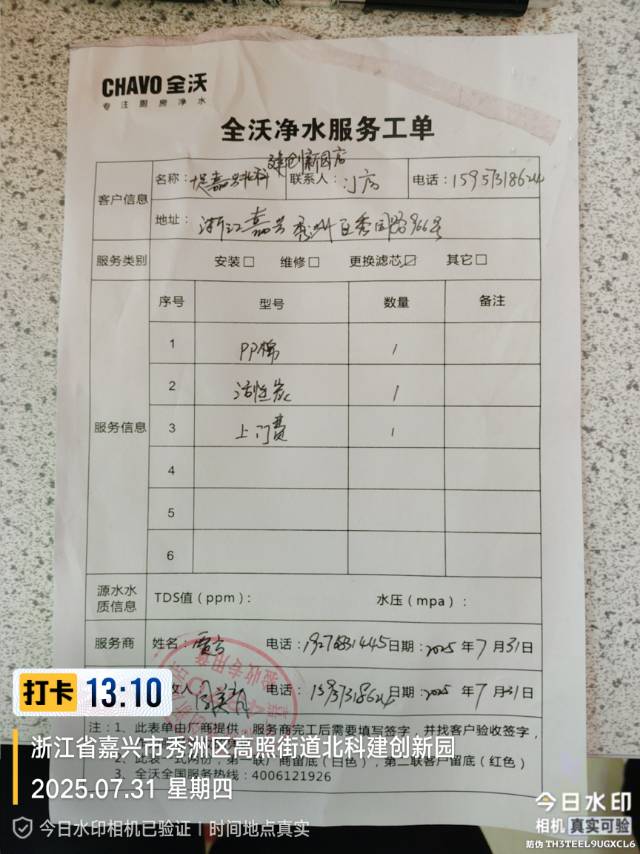 CHAVO 全沃
专注厨房净水
全沃净水服务工单
建创新园店
客户信息 名称: 嘉兴北科 联系人: 门店 电话: 15957318624
地址: 浙江嘉兴秀洲区秀园路966号
服务类别 安装□ 维修□ 更换滤芯☑ 其它□
服务信息 序号 型号 数量 备注
1 PP棉 1
2 活性炭 1
3 上门费 1
4
5
6
源水水质信息 TDS值(ppm): 水压(mpa):
服务商 姓名: 电话: 19276831445 日期: 2025 年 7 月 31 日
收人 电话: 15957318624 2025 年 7 月 31 日
注: 1、此表单由厂商提供,服务商完工后需要填写签字,并找客户验收签字,
2、此表一式两份,第一联厂商留底(白色),第二联客户留底(红色)
3、全沃全国服务热线: 4006121926
验收专用章
打卡 13:10
浙江省嘉兴市秀洲区高照街道北科建创新园
2025.07.31 星期四
今日水印相机已验证 | 时间地点真实
今日水印
相机 真实可验
防伪 TH3TEEL9UGXCL6